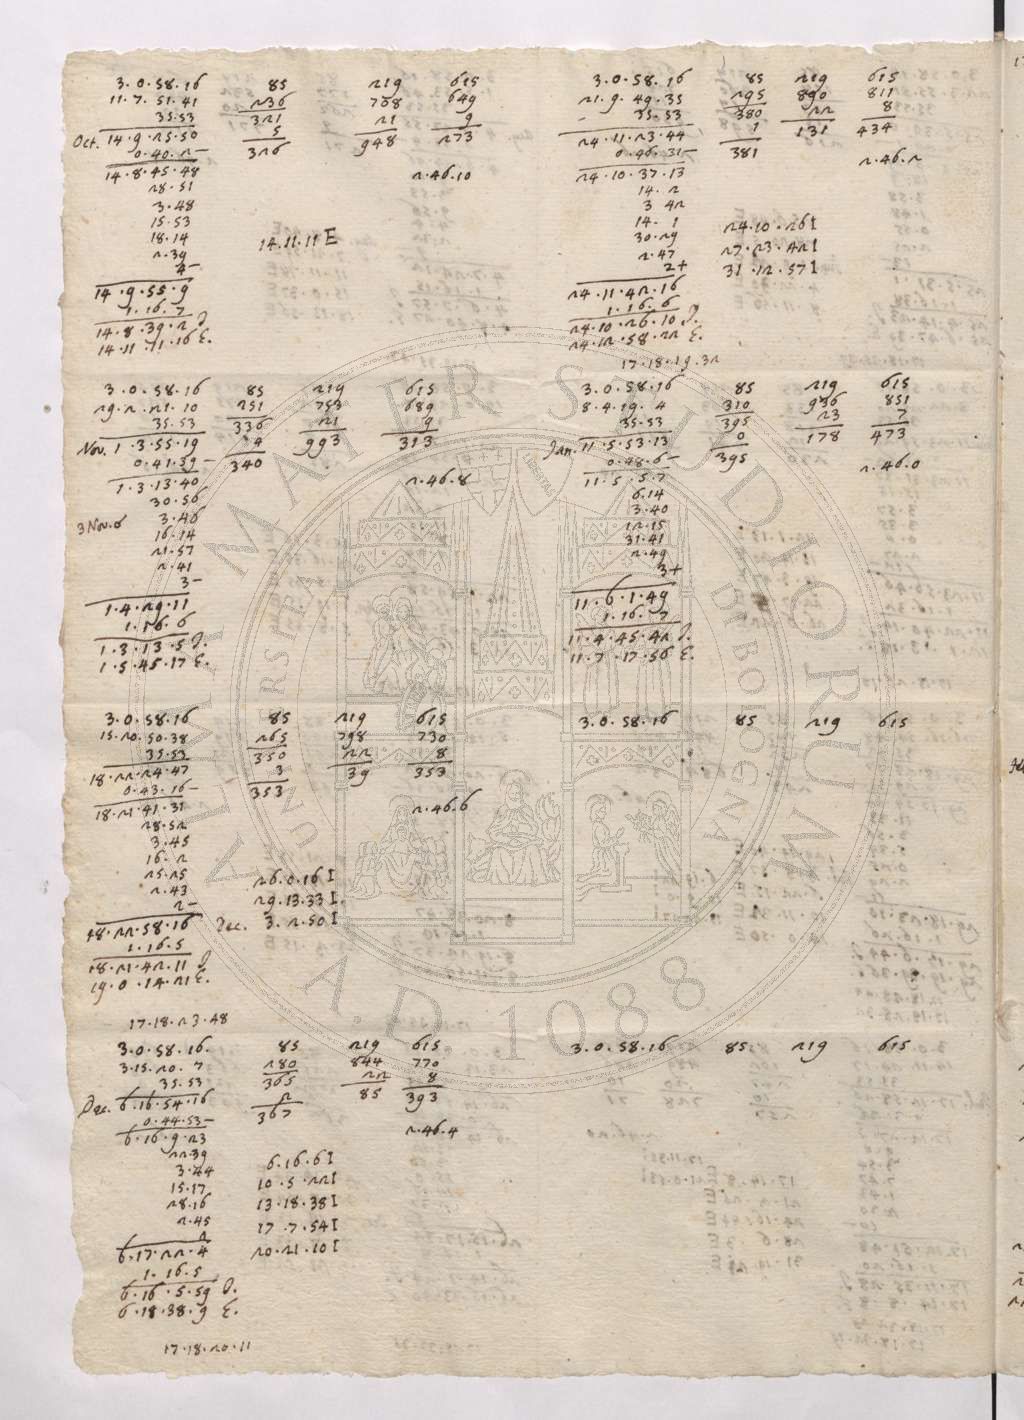 3.0.58.16 85 219 615
11.7.51.41 236 708 649
35.53 321 21 9
Oct. 14.9.25.50 5 948 273
0.40.2- 326
14.8.45.48 2.46.10
28.51
3.48
15.53
18.14 14.11.11 E
2.39
4-
14.9.55.9
1.16.7
14.8.39.2 I.
14.11.11.16 E.
3.0.58.16 85 219 615
21.9.49.35 295 890 811
35.53 380 22 8
24.11.23.44 1 131 434
0.46.31- 381
24.10.37.13 2.46.2
14.2
3 42
14.1 24.10.26 I
30.29 27.23.42 I
2.47 31.12.57 I
2+
24.11.42.16
1.16.6
24.10.26.10 I.
24.12.58.22 E.
17.18.19.32
3.0.58.16 85 219 615
29.2.21.10 251 753 689
35.53 336 21 9
Nov. 1.3.55.19 4 993 313
0.41.39- 340
1.3.13.40 2.46.8
30.56
3 Nov. 6 3.46
16.14
21.57
2.41
3-
1.4.29.11
1.16.6
1.3.13.5 I.
1.5.45.17 E.
3.0.58.16 85 219 615
8.4.19.4 310 936 851
35.53 395 23 7
Jan. 11.5.53.13 0 178 473
0.48.6- 395
11.5.5.7 2.46.0
6.14
3.40
12.15
31.41
2.49
3+
11.6.1.49
1.16.7
11.4.45.42 I.
11.7.17.56 E.
3.0.58.16 85 219 615
15.20.50.38 265 798 730
35.53 350 22 8
18.22.24.47 3 39 353
0.43.16- 353
18.21.41.31 2.46.6
28.52
3.45
16.2
25.25 26.0.16 I
2.43 29.13.33 I.
2-
18.22.58.16 Dec. 3.2.50 I
1.16.5
18.21.42.11 I
19.0.14.21 E.
17.18.23.48
3.0.58.16 85 219 615
3.0.58.16. 85 219 615
3.15.20.7 280 844 770
35.53 365 22 8
Dec. 6.16.54.16 2 85 393
0.44.53- 367
6.16.9.23 2.46.4
22.39
3.44 6.16.6 I
15.17 10.5.22 I
28.16 13.18.38 I
2.45 17.7.54 I
2
6.17.22.4 20.21.10 I
1.16.5
6.16.5.59 I.
6.18.38.9 E.
17.18.20.11
3.0.58.16 85 219 615
ALMA MATER STUDIORUM
UNIVERSITÀ DI BOLOGNA
A.D. 1088